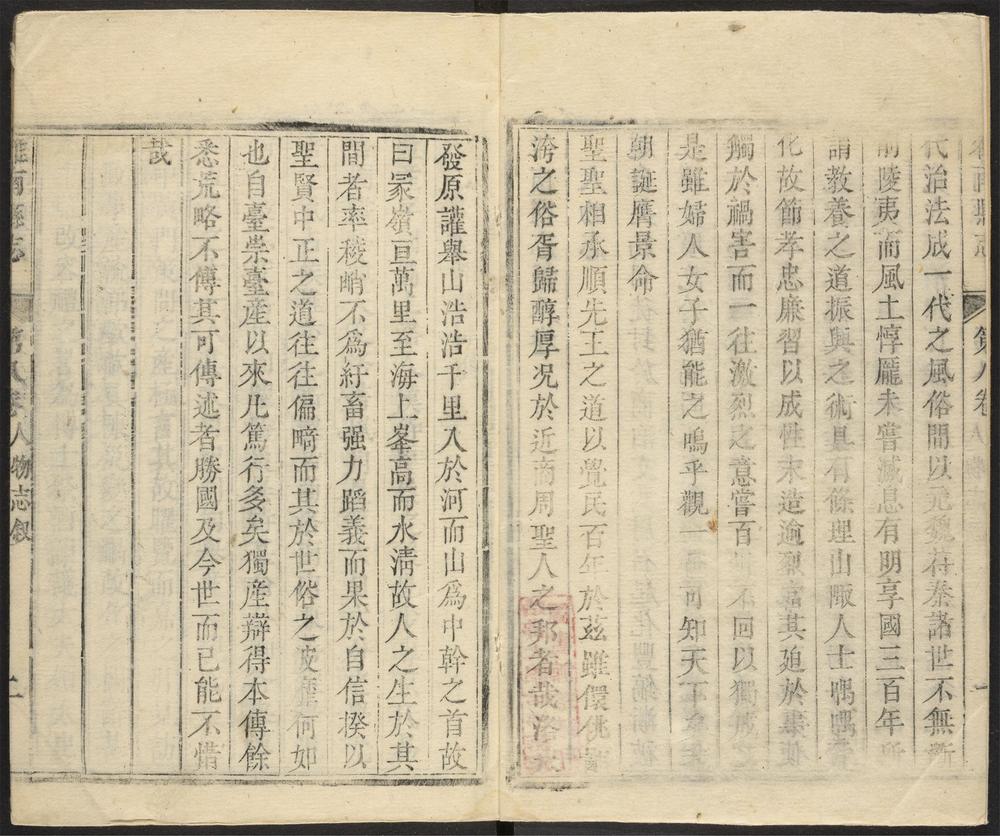 代治法成一代之風俗間以元魏苻秦諸世不無
陵夷而風土惇龐未嘗滅息有明享國三百年
教養之道振興之術具有條理山陬人士喁喁
化故節孝忠廉習以成性末造逾烈其廹於
觸於禍害而一往激烈之意嘗百不回以獨
是雖婦人女子猶能之嗚乎觀一可知天下
朝誕膺景命
聖聖相承順先王之道以覺民百年於茲雖儇佻
洿之俗胥歸醇厚况於近商周聖人之邦者哉洛
發原讙舉山浩浩千里入於河而山爲中幹之首故
曰冡嶺亘萬里至海上峯高而水淸故人之生於其
間者率稜峭不爲紆畜强力蹈義而果於自信揆以
聖賢中正之道往往偏畸而其於世俗之波靡何如
也自臺崇臺產以來凢篤行多矣獨產辯得本傳餘
悉荒略不傳其可傳述者勝國及今世而已能不惜
哉
雒南縣志 第八卷人物志叙 二